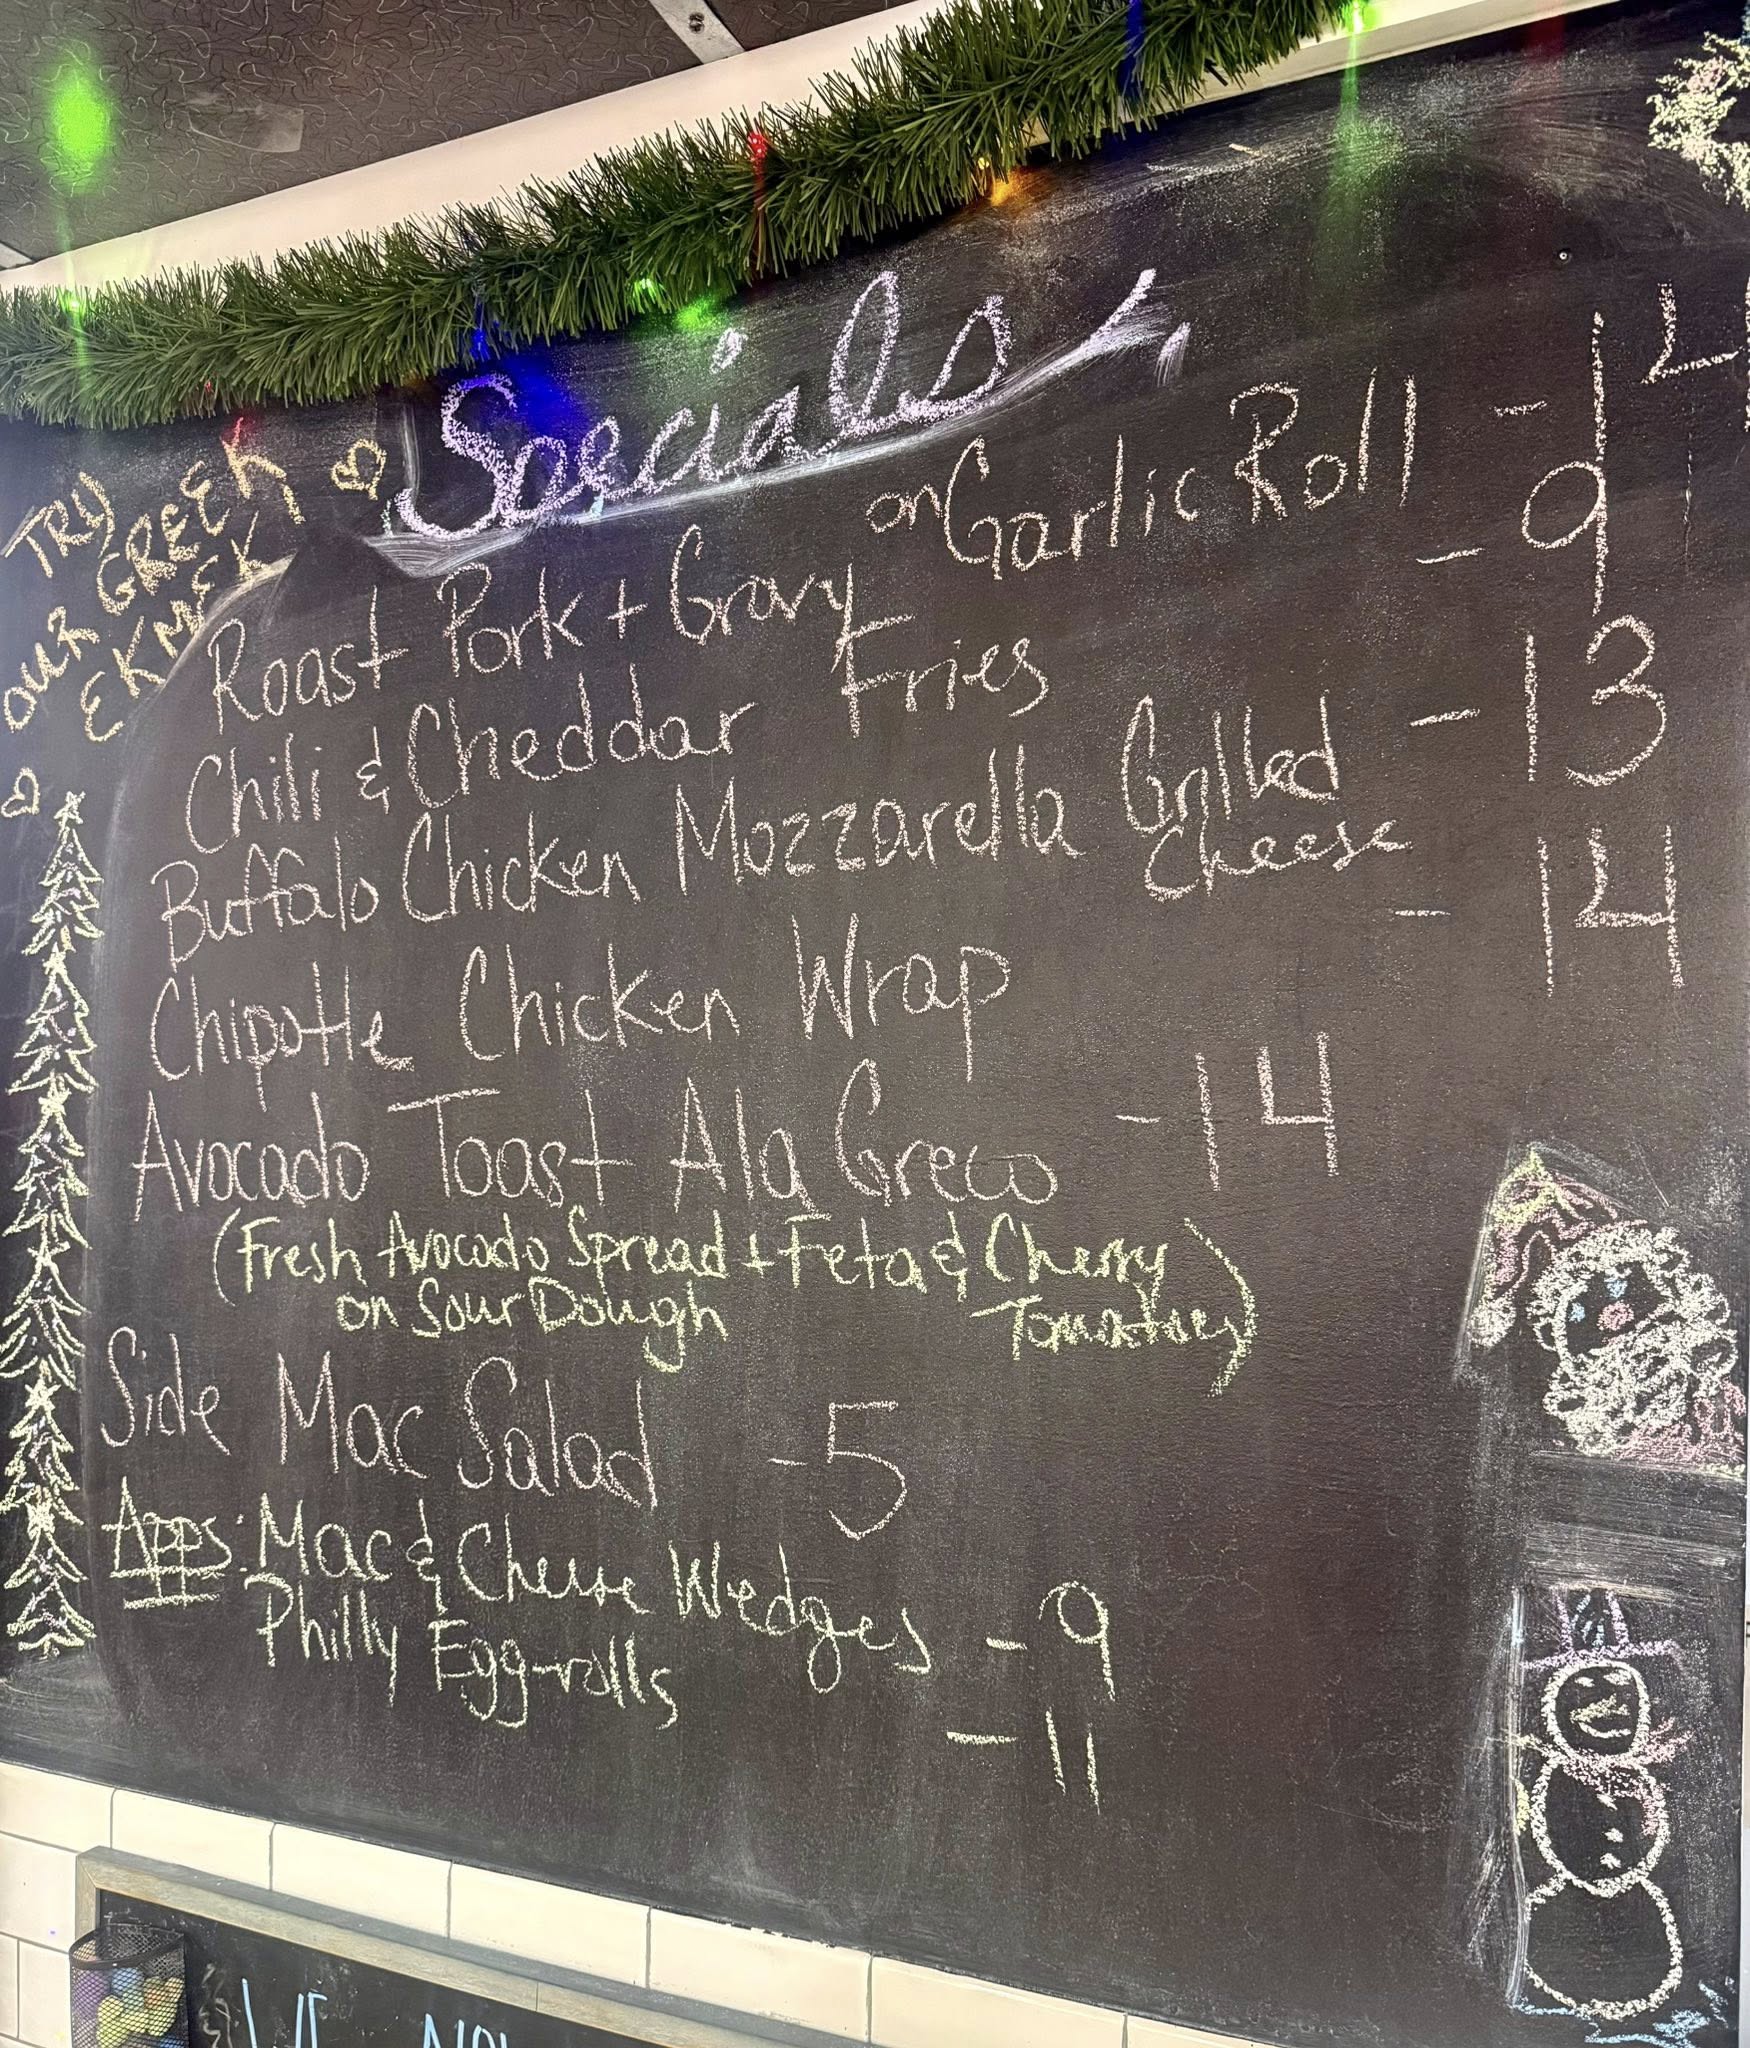 Specials
TRY
OUR GREEK
EKMEK
Roast Pork + Gravy on Garlic Roll - 14
Chili & Cheddar Fries - 9
Buffalo Chicken Mozzarella Grilled - 13
Cheese
Chipotle Chicken Wrap - 14
Avocado Toast Ala Greco - 14
(Fresh Avocado Spread + Feta & Cherry
on Sour Dough Tomatoes)
Side Mac Salad - 5
Apps: Mac & Cheese Wedges - 9
Philly Egg-rolls - 11
WE